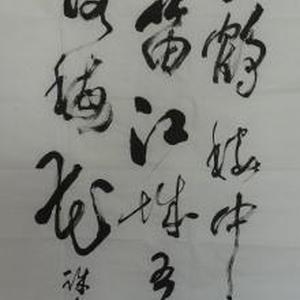 鶴楼中
笛江城五
落梅花